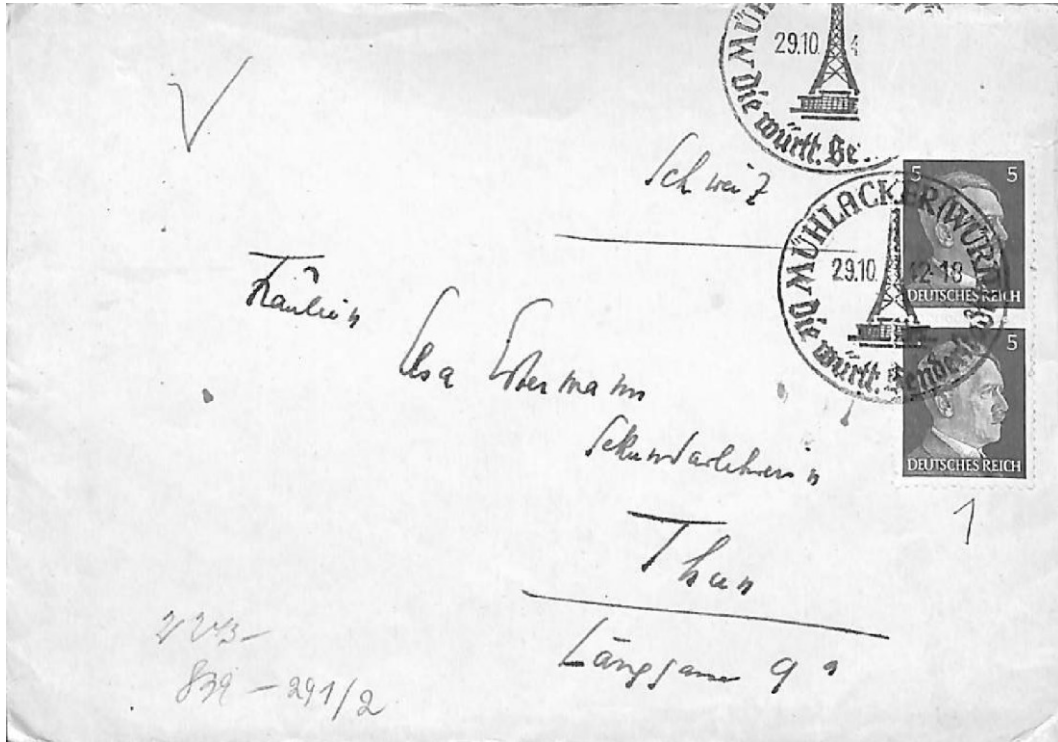 MÜH
29.10. 4
Die württ. Se
Schweiz
MÜHLACKER (WÜRTT
29.10. 12-18
Die württ. Senderst
5 5
DEUTSCHES REICH
5
DEUTSCHES REICH
Fräulein
Elsa
Sekundarlehrerin
Thun
Länggasse 9a
1
839 - 291/2